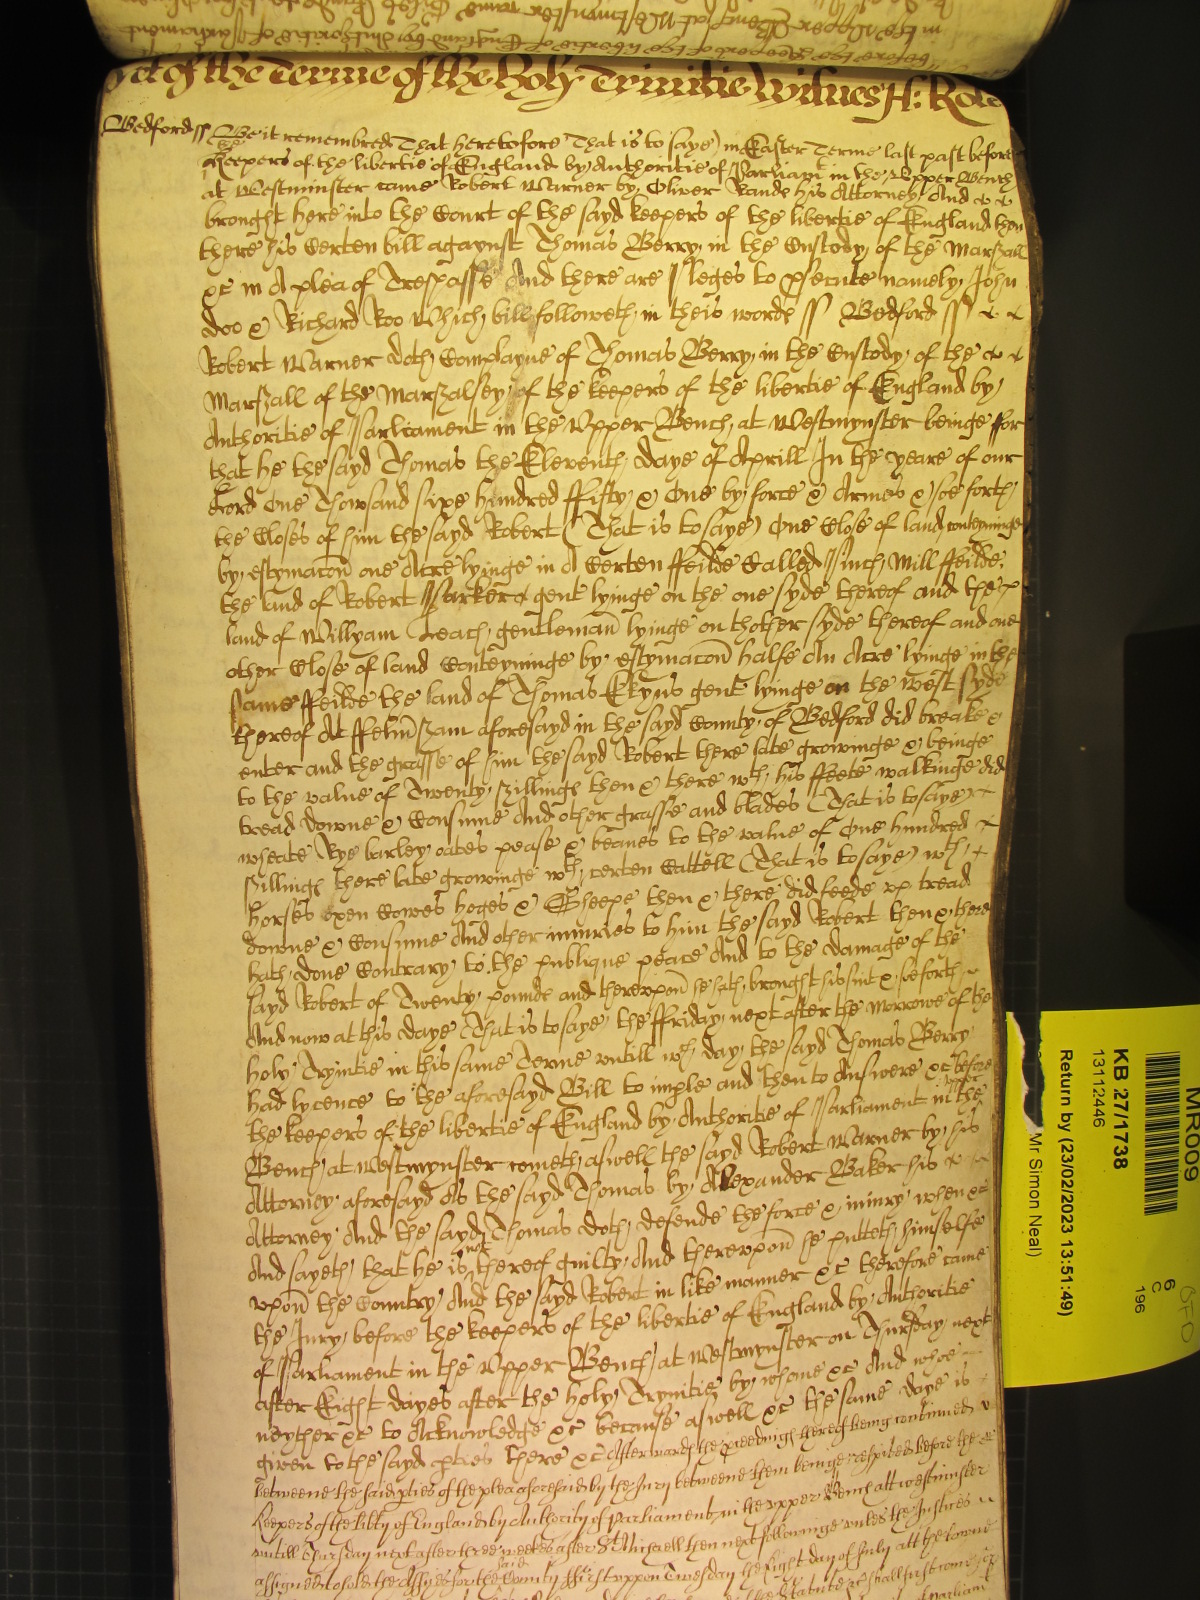 yet of the Terme of the Holy Trinitie Witnes H: Rolle
Bedford ss Be it remembred That heretofore That is to saye) in Easter Terme last past before
the keepers of the libertie of England by Authoritie of Parliamt in the Upper Bench
at Westminster came Robert Warner by Oliver Rande his Attorney And
brought here into the Court of the sayd keepers of the libertie of England then
there his Certen bill agaynst Thomas Berry in the Custody of the Marshall
&c in A plea of Trespasse And there are Pleges to psecute namely John
Doo & Richard Roo Which bill followeth in theis words ss Bedford ss
Robert Warner doth Complayne of Thomas Berry in the Custody of the
Marshall of the Marshalsey of the keepers of the libertie of England by
Authoritie of Parliament in the Upper Bench at Westmynster beinge ffor
that he the sayd Thomas the Eleventh daye of Aprill In the yeare of our
Lord One Thowsand sixe hundred ffifty & One by force & Armes & soe forth
the Closes of him the sayd Robert (That is to saye) One Close of land conteyninge
by estymacon one Acre lyinge in A Certen ffeilde Called Pinch Mill ffeilde
the land of Robert Parker gent lyinge on the one syde thereof and the
land of Willyam Leach gentleman lyinge on thother syde thereof and one
other Close of land Conteyninge by estymacon halfe An Acre lyinge in the
same ffeilde the land of Thomas Ekyns gent lyinge on the West syde
thereof At ffelmsham aforesayd in the sayd County of Bedford did breake &
enter and the grasse of him the sayd Robert there late growinge & beinge
to the value of Twenty shillings then & there wth his ffeete walkinge did
tread downe & Consume And other grasse and blades (That is to saye
wheate Rye barley oates pease & beanes to the value of One hundred
shillings there late growinge wth certen Cattell (That is to saye) wth
horses oxen Cowes hoges & Sheepe then & there did feede up tread
downe & Consume And other iniuries to him the sayd Robert then & there
hath done Contrary to the publique peace And to the damage of the
sayd Robert of Twenty pounds and thereupon he hath brought his suit & soe forth
And now at this daye That is to saye the ffriday next after the Morrowe of the
Holy Trynitie in this same Terme untill wch day the sayd Thomas Berry
had lycence to the aforesayd Bill to imple and then to Answere &c before
the keepers of the libertie of England by Authoritie of Parliament in the Upper
Bench at Westmynster cometh aswell the sayd Robert Warner by his
Attorney aforesayd As the sayd Thomas by Alexander Baker his
Attorney And the sayd Thomas doth defende the force & iniury when &c
And sayeth that he is not thereof guilty And thereupon he putteth himselfe
upon the Country And the sayd Robert in like manner &c therefore came
the Jury before the keepers of the libertie of England by Authoritie
of Parliament in the Upper Bench at Westmynster on Thursday next
after Eight dayes after the holy Trynitie by whome &c And whoe
neyther &c to Acknowledge &c because aswell &c the same daye is
given to the sayd pties there &c Afterwards the pceedings thereof being continued
betweene the said pties of the plea aforesaid by the Jury betweene them beinge respited before the
Keepers of the libty of England by Authority of Parliament in the upper Bench att westminster
untill Thursday next after three weekes after St Michaell then next followinge unles the Justices
assigned to hold the Assizes for the said County ffirst uppon Twesday the Eight day of July att the towne
the Statute &c shall first come
of Parliam
MR009
6
C
196
KB 27/1738
13112446
Return by (23/02/2023 13:51:49)
Mr Simon Neal)